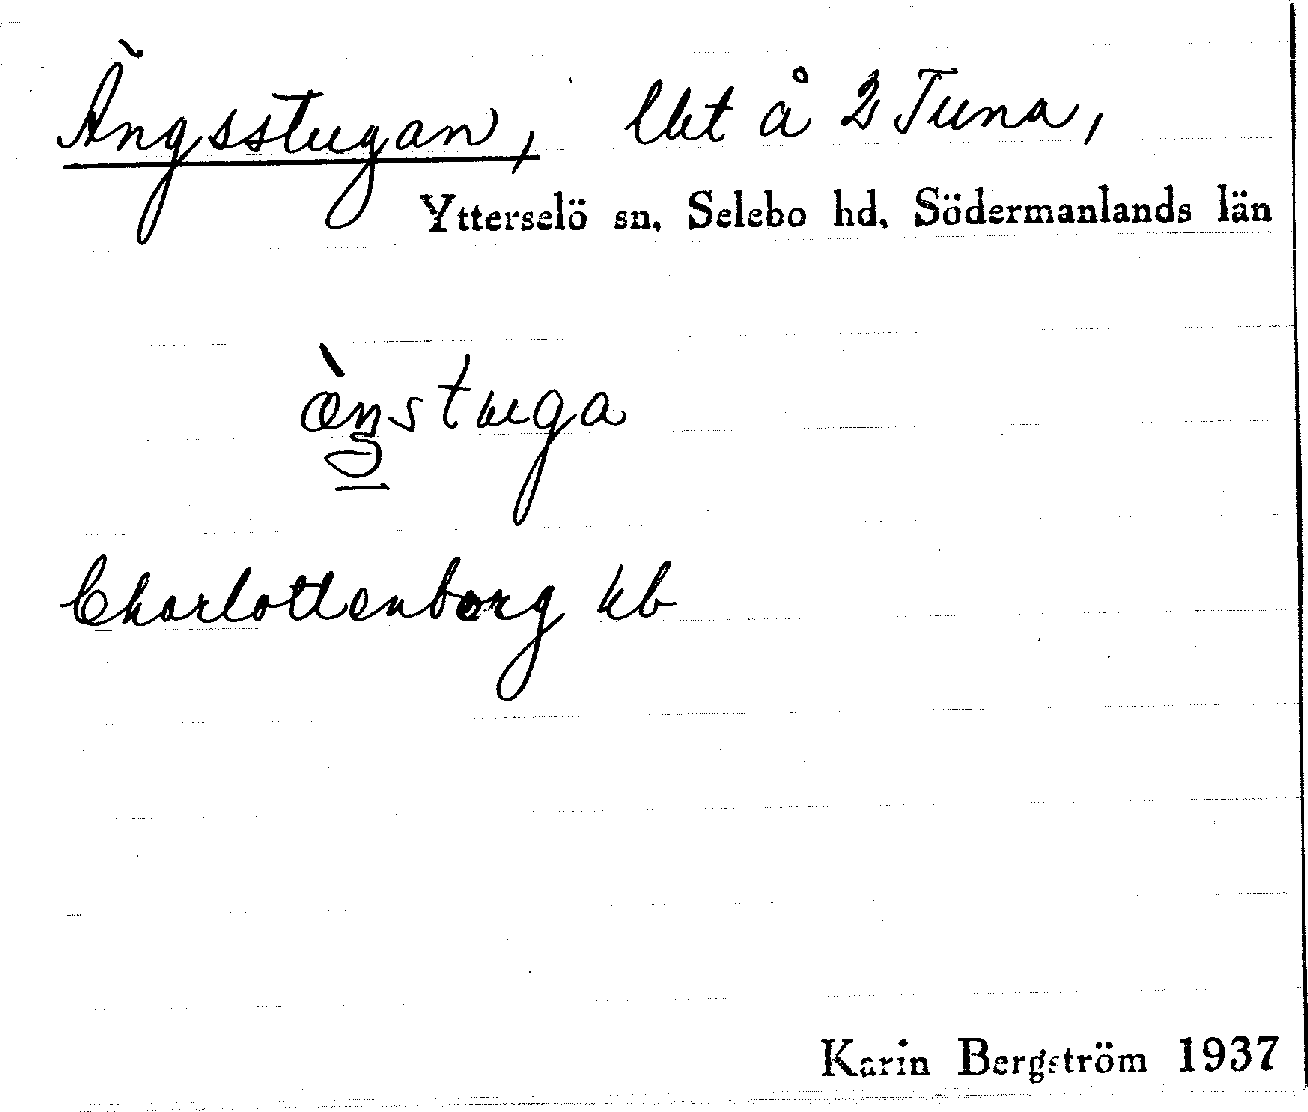 Ängsstugan, lht å 2 Tuna,
Ytterselö sn, Selebo hd, Södermanlands län
æ̀ŋstuga
Charlottenborg kb
Karin Bergström 1937